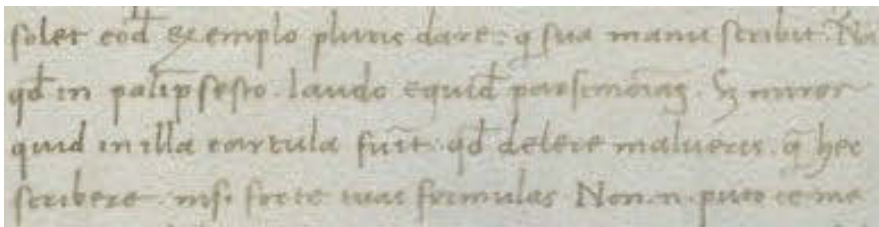 solet eod̄ exemplo pluris dare. q̄ sua manu scribit. Nā
qd̄ in palīpsesto. laudo equid̄ parsimoniaꝫ. Sꝫ miror
quid in illa cartula fuīt. qd̄ delere malueris. q̄ hec
scribere. nisi forte tuas formulas Non .n. puto te me